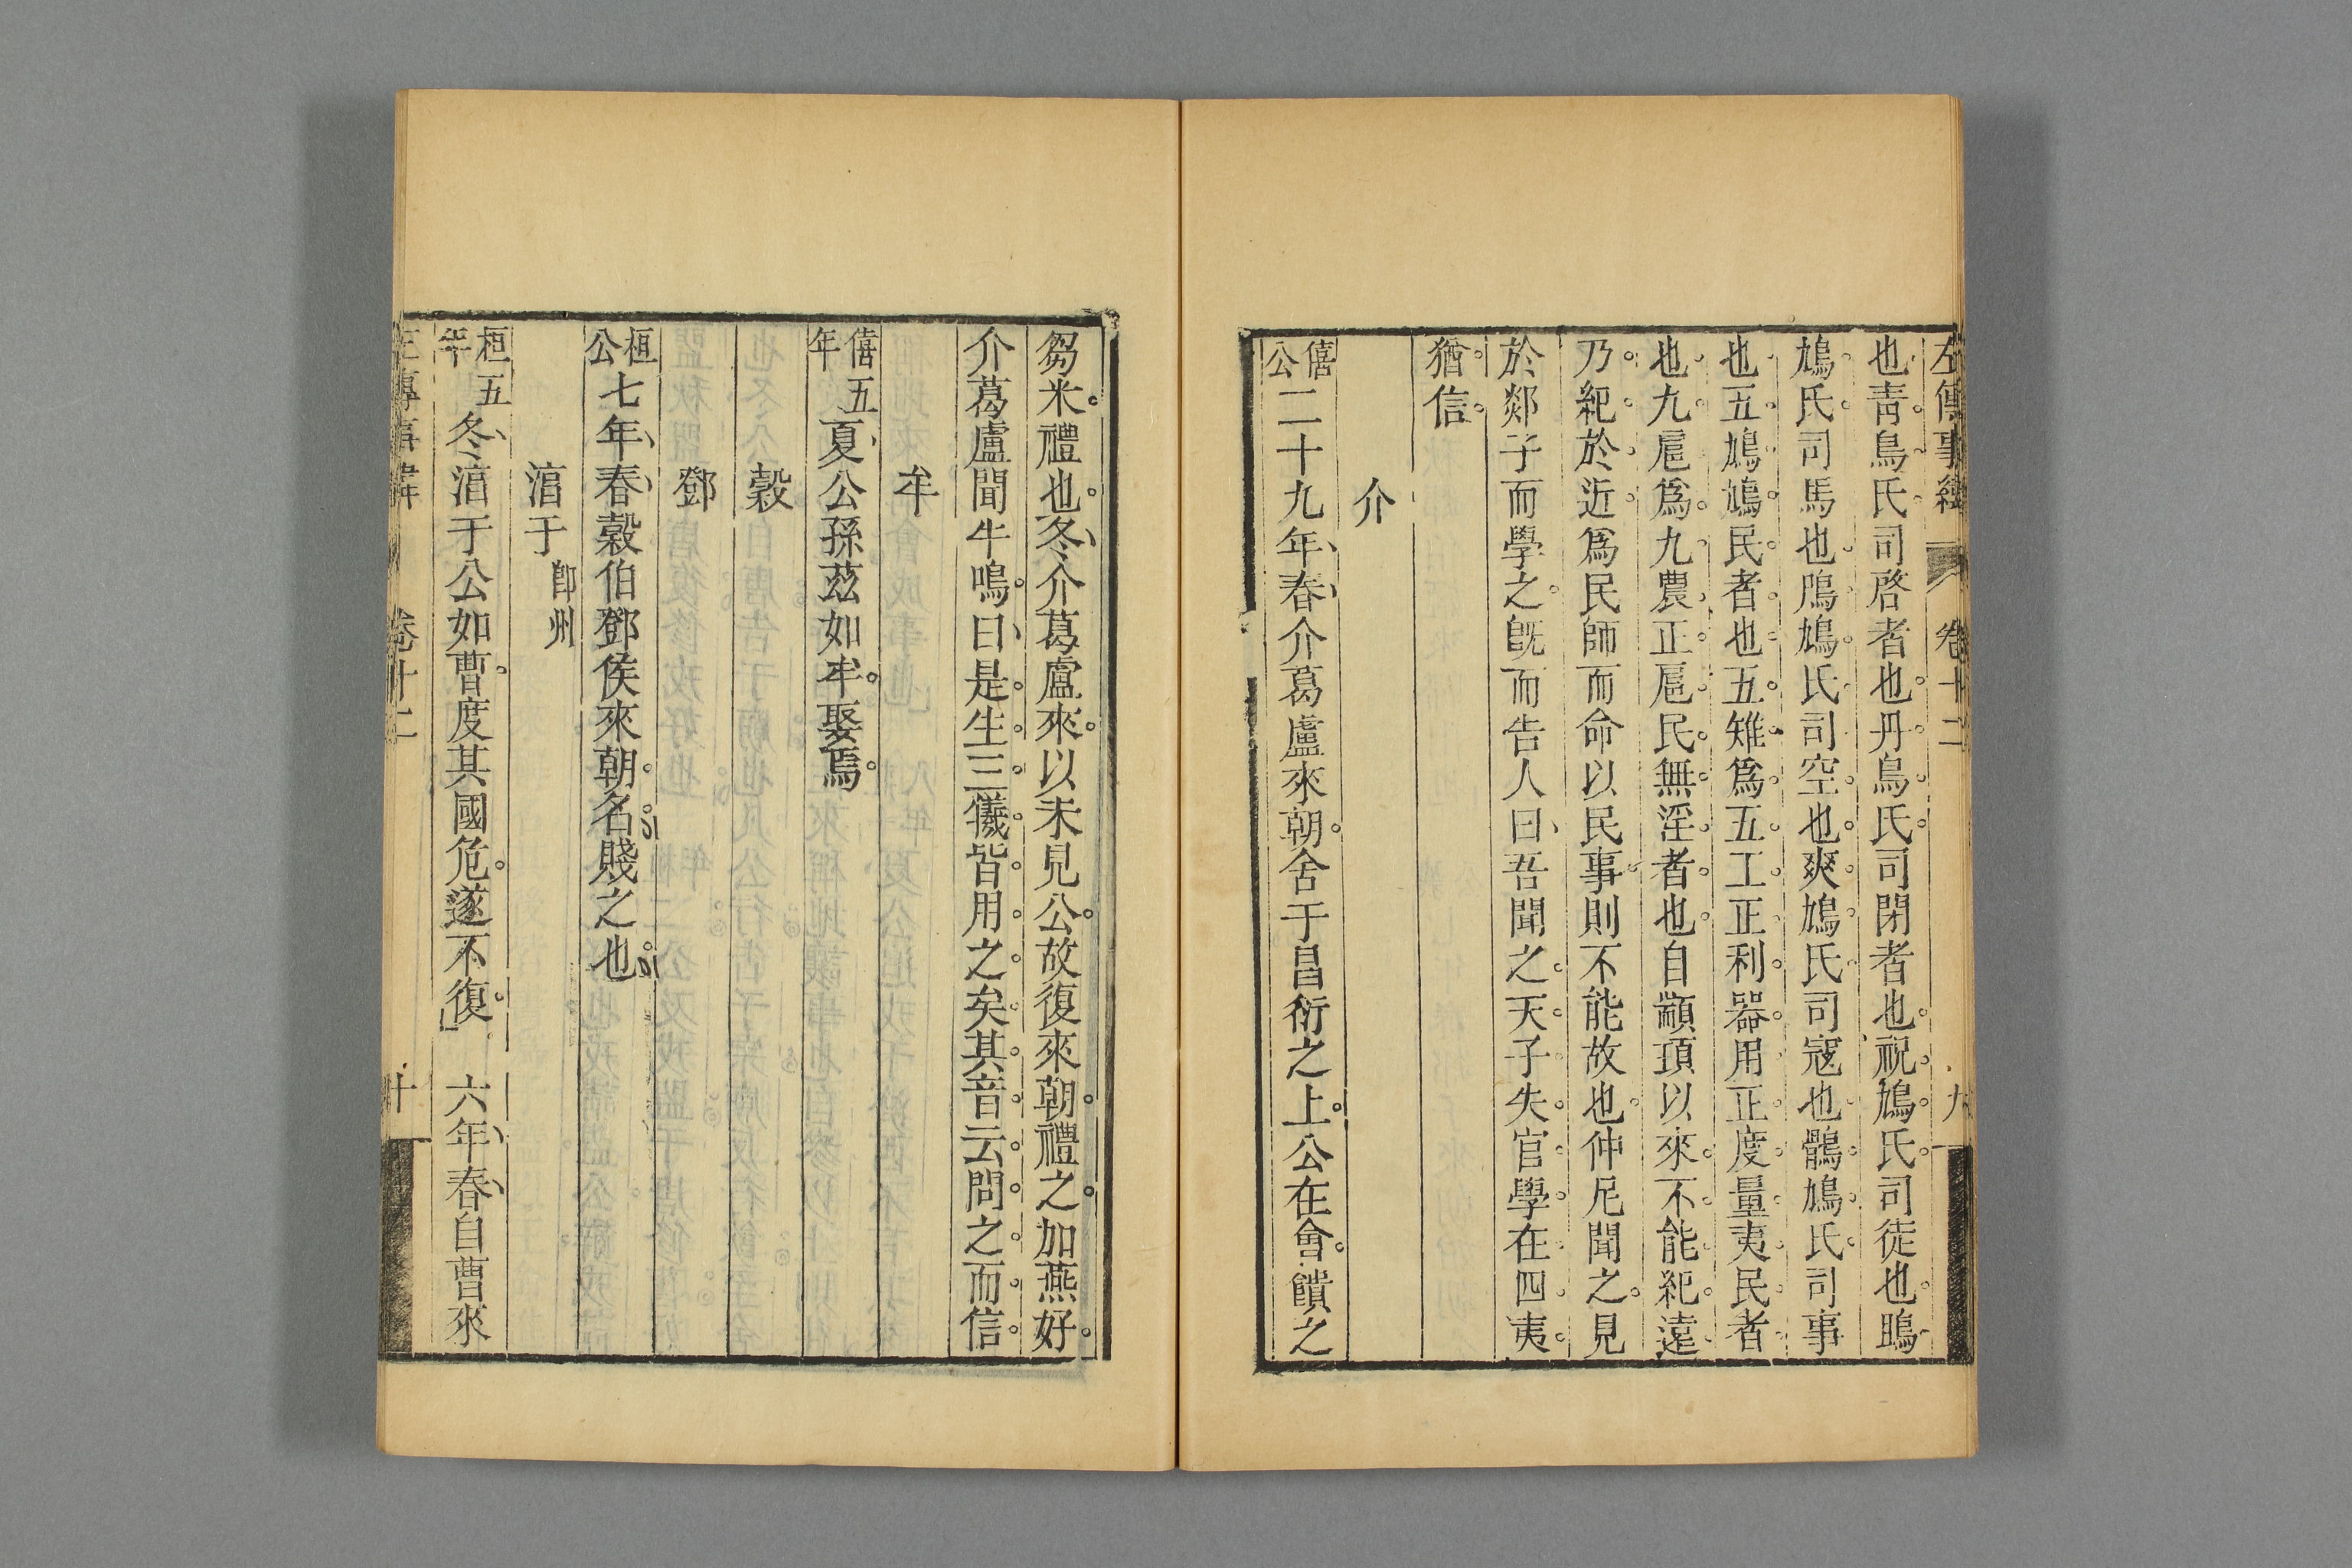 左傳事緯 卷十二 九
也靑鳥氏司啓者也丹鳥氏司閉者也祝鳩氏司徒也鴡
鳩氏司馬也鳲鳩氏司空也爽鳩氏司寇也鶻鳩氏司事
也五鳩鳩民者也五雉爲五工正利器用正度量夷民者
也九扈爲九農正扈民無淫者也自顓頊以來不能紀遠
乃紀於近爲民師而命以民事則不能故也仲尼聞之見
於郯子而學之旣而告人曰吾聞之天子失官學在四夷
猶信
介
僖公二十九年春介葛盧來朝舍于昌衍之上公在會饋之
芻米禮也冬介葛盧來以未見公故復來朝禮之加燕好
介葛盧聞牛鳴曰是生三犧皆用之矣其音云問之而信
牟
僖五年夏公孫茲如牟娶焉
穀
鄧
桓公七年春穀伯鄧侯來朝名賤之也
淯于 卽州
桓五年冬淯于公如曹度其國危遂不復 六年春自曹來
左傳事緯 卷十二 十